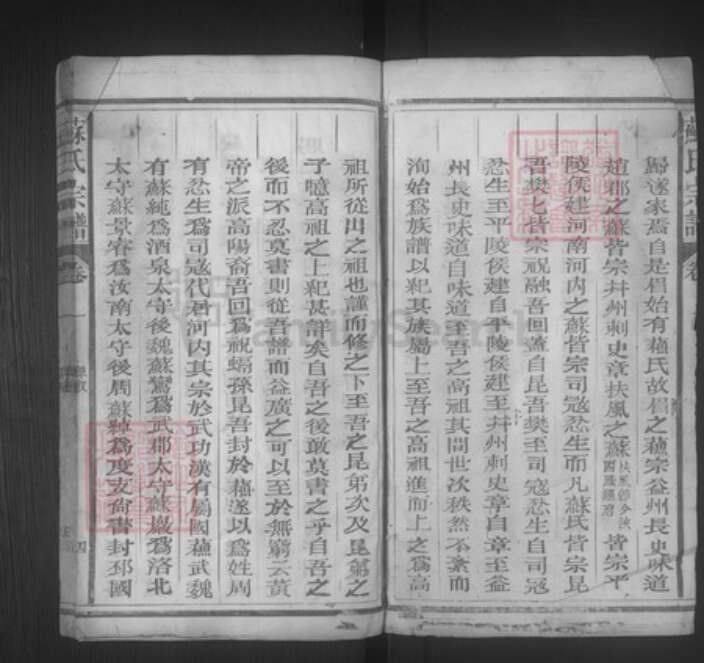 歸遂家焉自是眉始有蘓氏故眉之蘓宗益州長史味道
趙郡之蘇皆宗并州刺史章扶風之蘇皆宗平
陵侯建河南河內之蘇皆宗司寇忿生而凡蘇氏皆宗昆
吾樊七皆宗祝融吾回蓋自昆吾樊至司寇忿生自司寇
忿生至平陵侯建自平陵侯建至并州刺史章自章至益
州長史味道自味道至吾之高祖其間世次秩然不紊而
洵始為族譜以紀其族屬上至吾之高祖進而上之為高
祖所從出之祖也謹而修之下至吾之昆弟次及昆弟之
子噫高祖之上紀甚詳矣自吾之後敢莫書之乎自吾之
後而不忍莫書則從吾譜而益廣之可以至於無窮云黃
帝之派高陽裔吾回為祝螎孫昆吾封於蘓遂以為姓周
有忿生為司寇代君河內其宗於武功漢有屬國蘓武魏
有蘇純為酒泉太守後魏蘇鸞為武都太守蘇巖為洛北
太守蘇景睿為汝南太守後周蘇綽為度支尙書封邳國
蘇氏宗譜
卷一
蘇氏宗譜
卷
FamilySearch